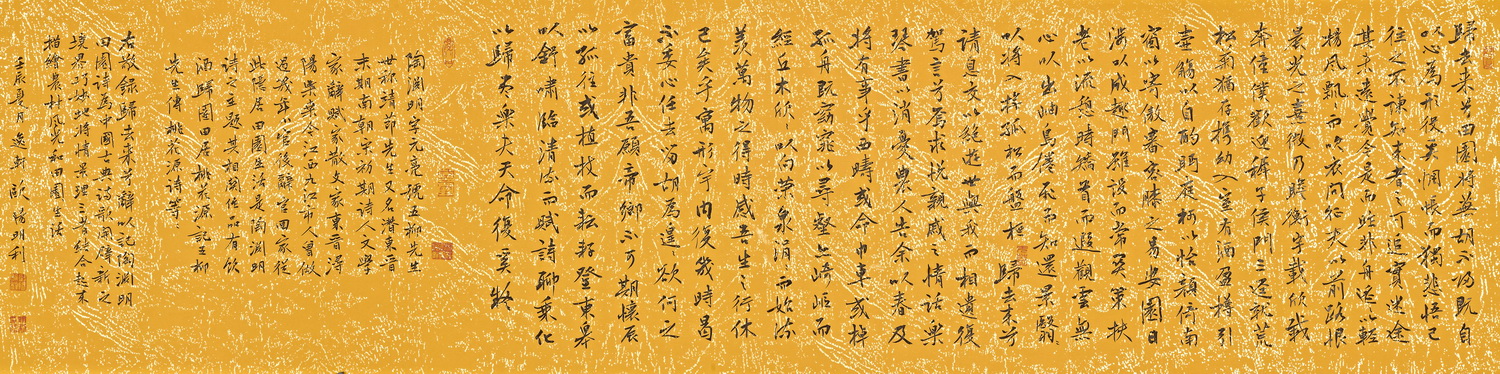 歸去來兮田園將蕪胡不歸既自
以心為形役奚惆悵而獨悲悟已
往之不諫知來者之可追實迷途
其未遠覺今是而昨非舟遙以輕
揚風飄〻而吹衣問征夫以前路恨
晨光之熹微乃瞻衡宇載欣載
奔僮僕歡迎稚子候門三逕就荒
松菊猶存攜幼入室有酒盈樽引
壺觴以自酌眄庭柯以怡顏倚南
窗以寄傲審容膝之易安園日
涉以成趣門雖設而常關策扶
老以流憩時矯首而遐觀雲無
心以出岫鳥倦飛而知還景翳〻
以將入撫孤松而盤桓 歸去來兮
請息交以絕遊世與我而相遺復
駕言兮焉求悅親戚之情話樂
琴書以消憂農人告余以春及
將有事乎西疇或命巾車或棹
孤舟既窈窕以尋壑亦崎嶇而
經丘木欣〻以向榮泉涓〻而始流
羨萬物之得時感吾生之行休
已矣乎寓形宇內復幾時曷
不委心任去留胡為遑〻欲何之
富貴非吾願帝鄉不可期懷良辰
以孤往或植杖而耘耔登東皋
以舒嘯臨清流而賦詩聊乘化
以歸盡樂夫天命復奚疑
陶淵明字元亮號五柳先生
世稱靖節先生又名潛東晉
末期南朝宋初期詩人文學
家辭賦家散文家東晉潯
陽柴桑今江西九江市人曾做
過幾年小官後辭官回家從
此隱居田園生活是陶淵明
詩之主題其相關作品有飲
酒歸園田居桃花源記五柳
先生傳桃花源詩等
右敬錄歸去來兮辭以記陶淵明
田園詩為中國古典詩歌開闢新之
境界巧妙地將情景理三者結合起來
描繪農村風光和田園生活
壬辰夏月逸軒歐陽明利